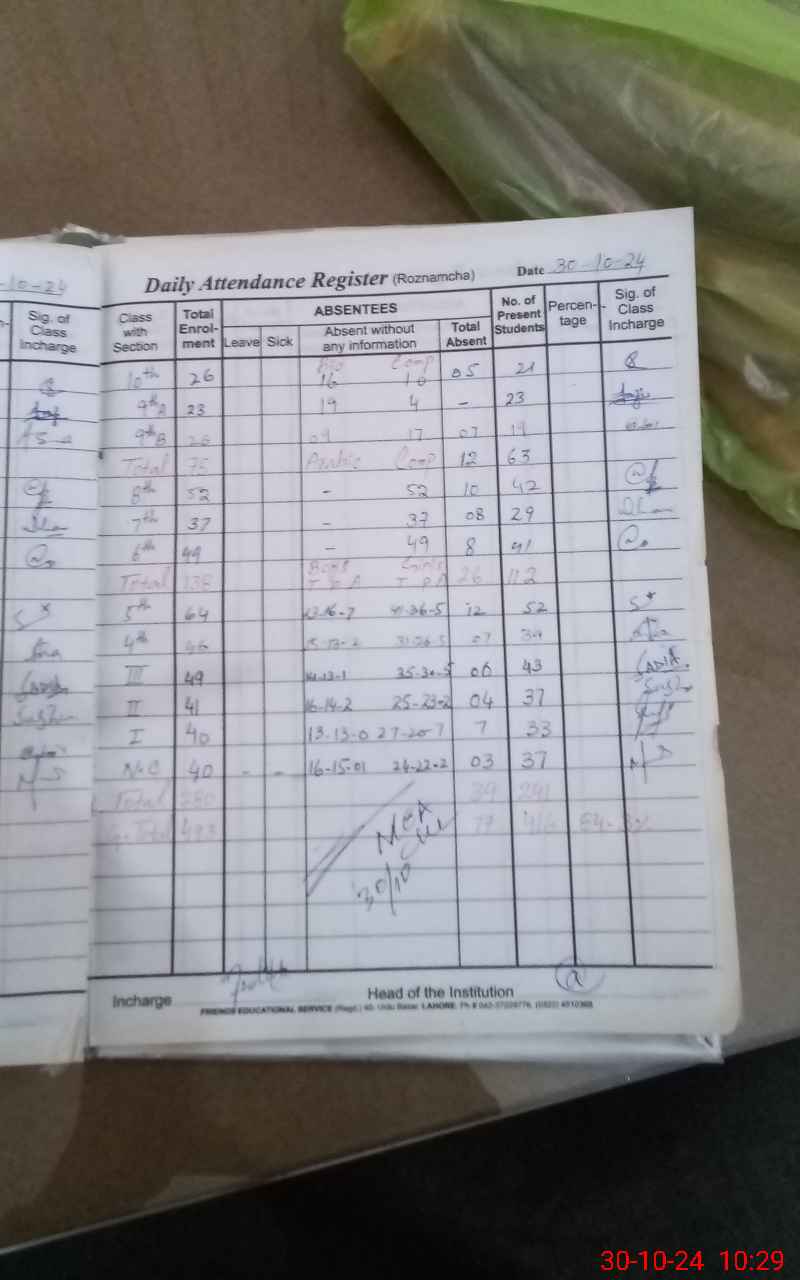 -10-24
Daily Attendance Register (Roznamcha) Date 30-10-24
Sig. of Class Incharge
Class with Section Total Enrol-ment ABSENTEES No. of Present Students Percen-tage Sig. of Class Incharge
Leave Sick Absent without any information Total Absent
Bio Comp
10th 26 16 10 05 21
9th A 23 19 4 - 23
9th B 26 09 17 07 19
Total 75 Arabic Comp 12 63
8th 52 - 52 10 42
7th 37 - 37 08 29
6th 49 - 49 8 41
Total 138 Boys Girls 26 112
T P A T P A
5th 64 12 52
4th 46 07 39
III 49 14-13-1 35-30-5 06 43
II 41 16-14-2 25-23-2 04 37
I 40 13-13-0 27-20-7 7 33
40 - - 16-15-01 24-22-2 03 37
Total 280 39 241
G.Total 493 77 416
30/10
Incharge Head of the Institution
FRIENDS EDUCATIONAL SERVICE (Regd.) 40- Urdu Bazar, LAHORE.
30-10-24 10:29